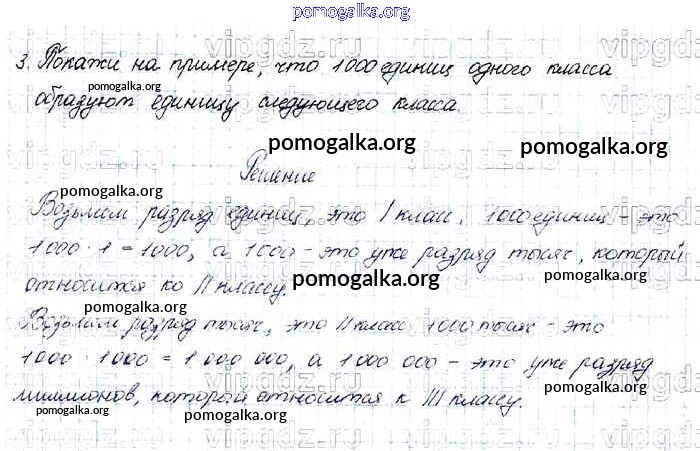 pomogalka.org
3. Покажи на примере, что 1000 единиц одного класса
образуют единицу следующего класса.
pomogalka.org
pomogalka.org
pomogalka.org
Решение
pomogalka.org
Возьмем разряд единиц, это I класс. 1000 единиц - это
1000 · 1 = 1000, а 1000 - это уже разряд тысяч, который
относится ко II классу.
pomogalka.org
pomogalka.org
pomogalka.org
Возьмем разряд тысяч, это II класс. 1000 тысяч - это
1000 · 1000 = 1 000 000, а 1 000 000 - это уже разряд
миллионов, который относится к III классу.
pomogalka.org
pomogalka.org
pomogalka.org